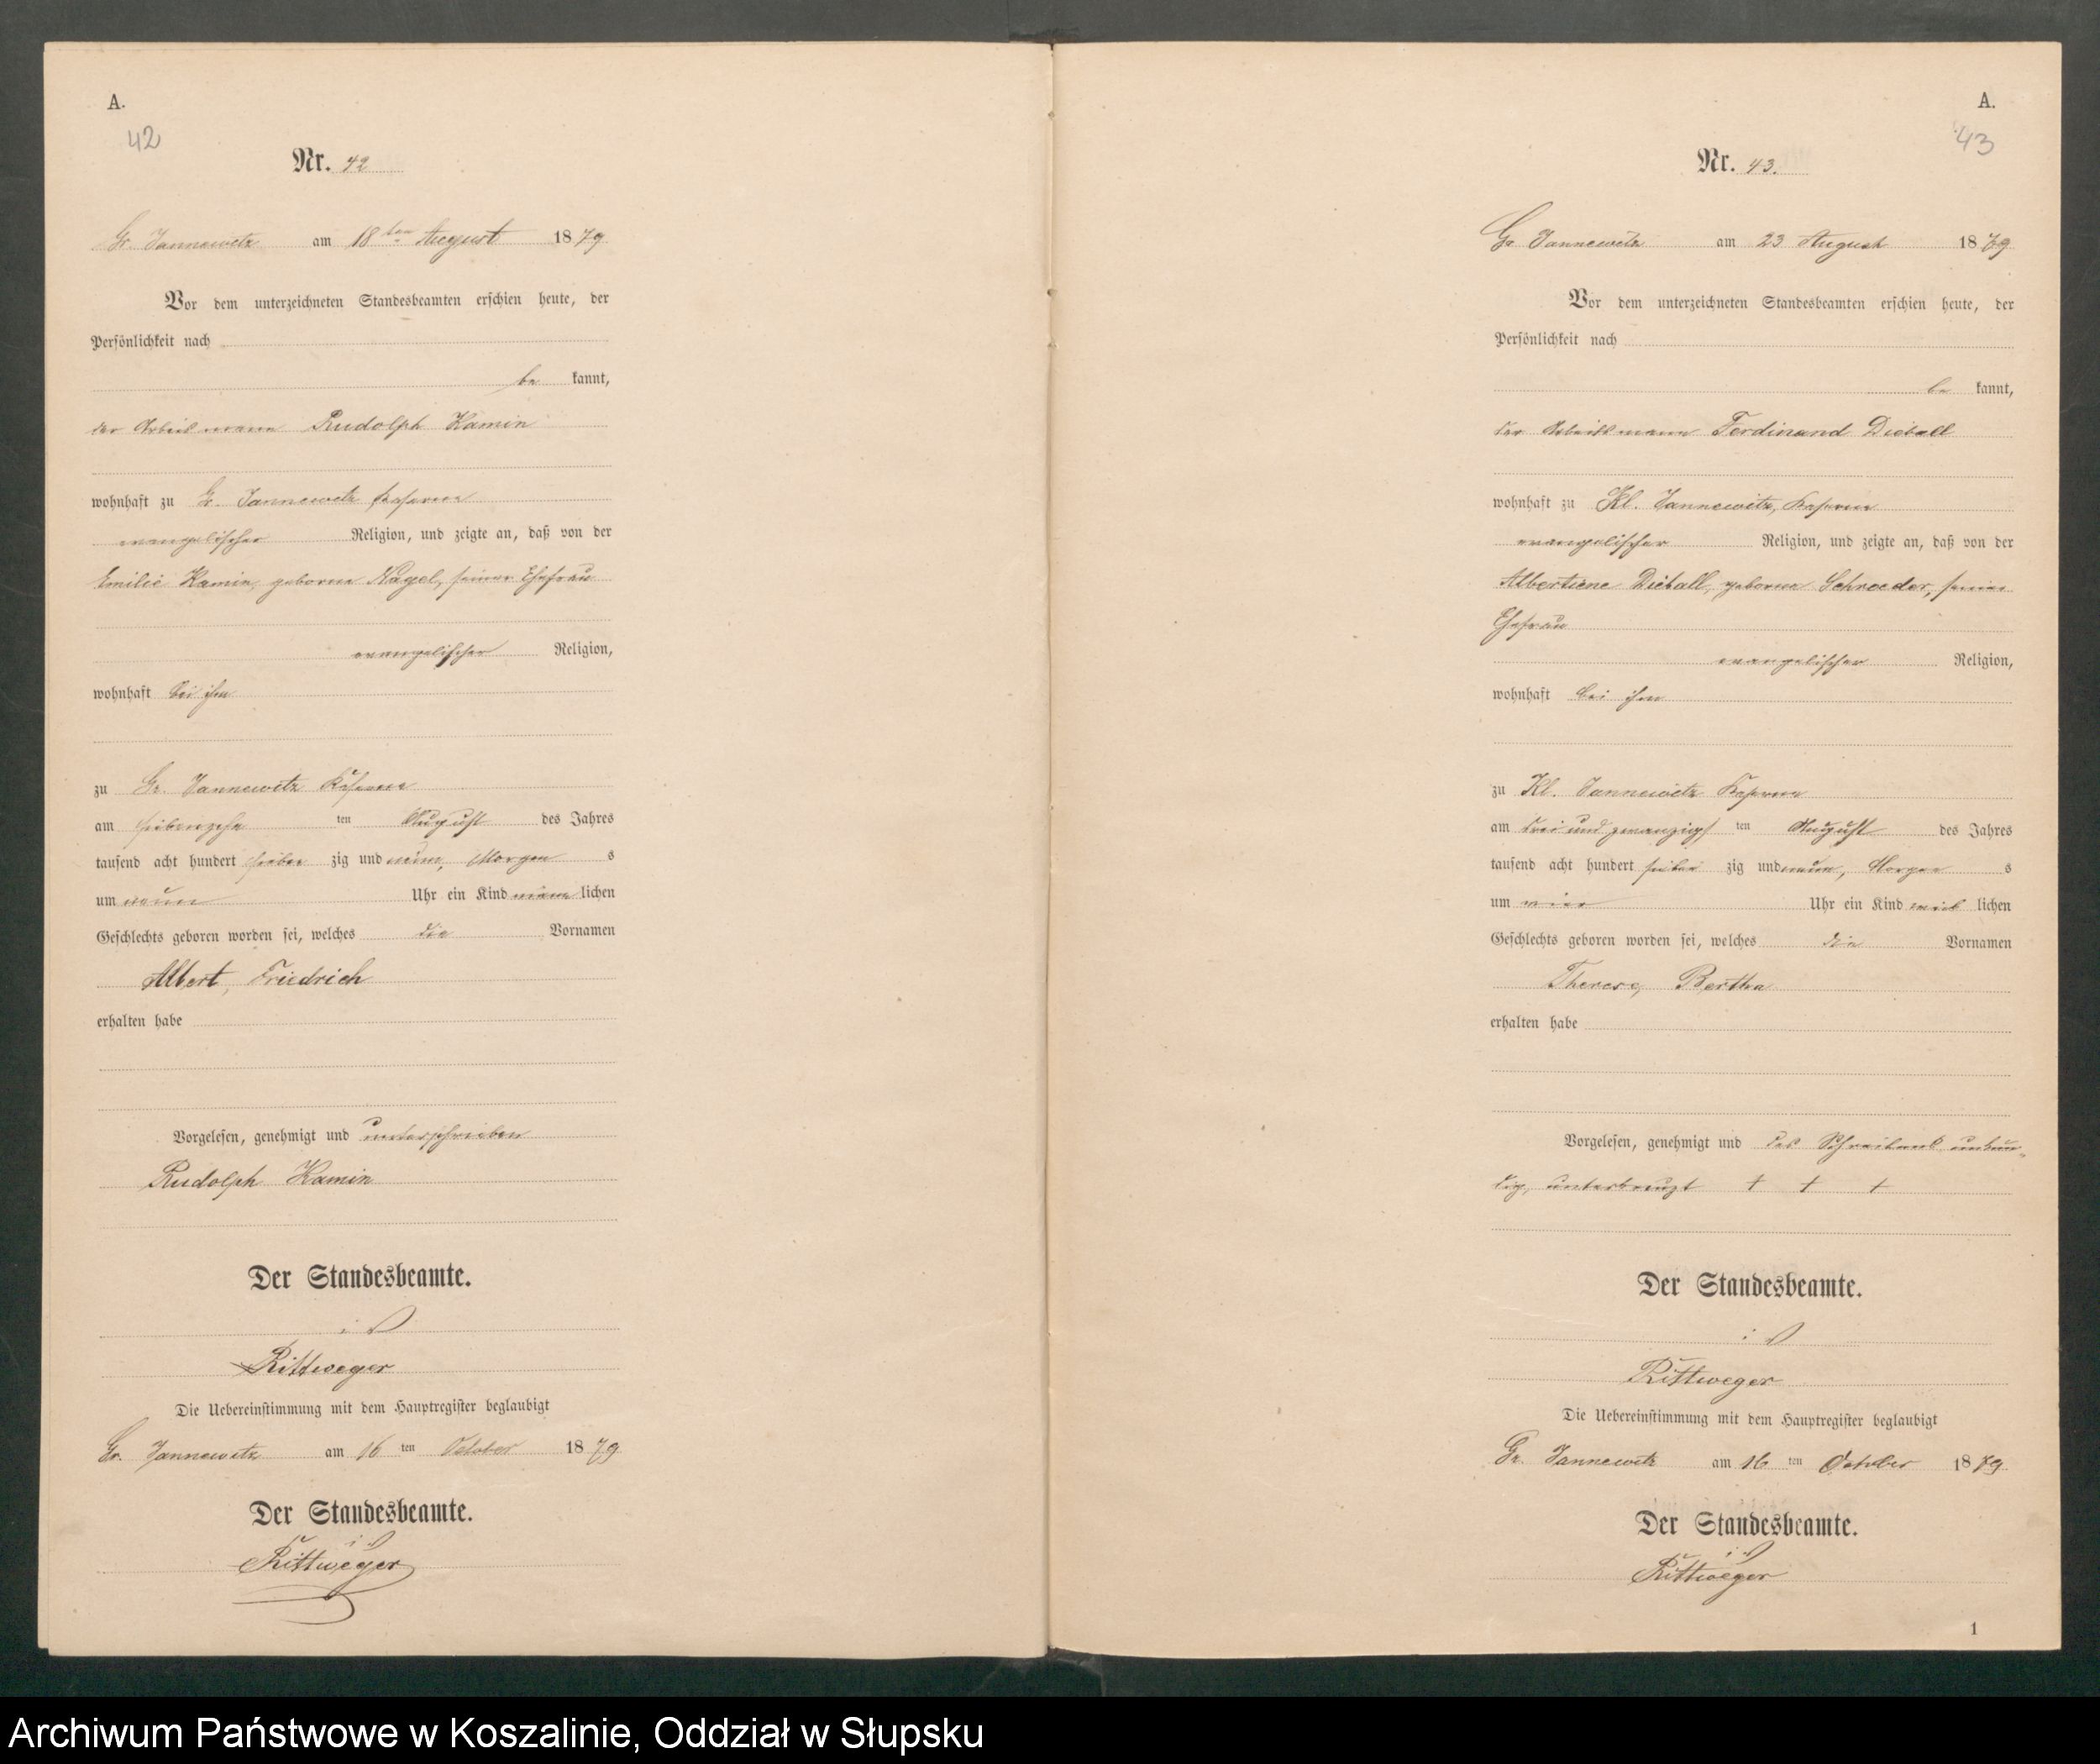 A.
42
Nr. 42
Gr. Jannewitz am 18ten August 1879
Vor dem unterzeichneten Standesbeamten erschien heute, der
Persönlichkeit nach
be kannt,
der Arbeitsmann Rudolph Kamin
wohnhaft zu Gr. Jannewitz Kaserne
evangelischer Religion, und zeigte an, daß von der
Emilie Kamin, geborne Nagel, seiner Ehefrau
evangelischer Religion,
wohnhaft bei ihm
zu Gr. Jannewitz Kaserne
am siebenzehn ten August des Jahres
tausend acht hundert sieben zig und neun, Morgen s
um neun Uhr ein Kind männ lichen
Geschlechts geboren worden sei, welches die Vornamen
Albert, Friedrich
erhalten habe
Vorgelesen, genehmigt und unterschrieben
Rudolph Kamin
Der Standesbeamte.
Rittweger
Die Uebereinstimmung mit dem Hauptregister beglaubigt
Gr. Jannewitz am 16 ten October 1879
Der Standesbeamte.
Rittweger
A.
43
Nr. 43.
Gr Jannewitz am 23 August 1879
Vor dem unterzeichneten Standesbeamten erschien heute, der
Persönlichkeit nach
be kannt,
der Arbeitsmann Ferdinand Dieball
wohnhaft zu Kl. Jannewitz, Kaserne
evangelischer Religion, und zeigte an, daß von der
Albertiene Dieball, geborne Schroeder, seiner
Ehefrau
evangelischer Religion,
wohnhaft bei ihm
zu Kl. Jannewitz Kaserne
am drei und zwanzigs ten August des Jahres
tausend acht hundert sieben zig und neun, Morgen s
um vier Uhr ein Kind weib lichen
Geschlechts geboren worden sei, welches die Vornamen
Therese, Bertha
erhalten habe
Vorgelesen, genehmigt und des Schreibens unkun-
dig, unterkreuzt + + +
Der Standesbeamte.
Rittweger
Die Uebereinstimmung mit dem Hauptregister beglaubigt
Gr. Jannewitz am 16 ten October 1879
Der Standesbeamte.
Rittweger
1
Archiwum Państwowe w Koszalinie, Oddział w Słupsku